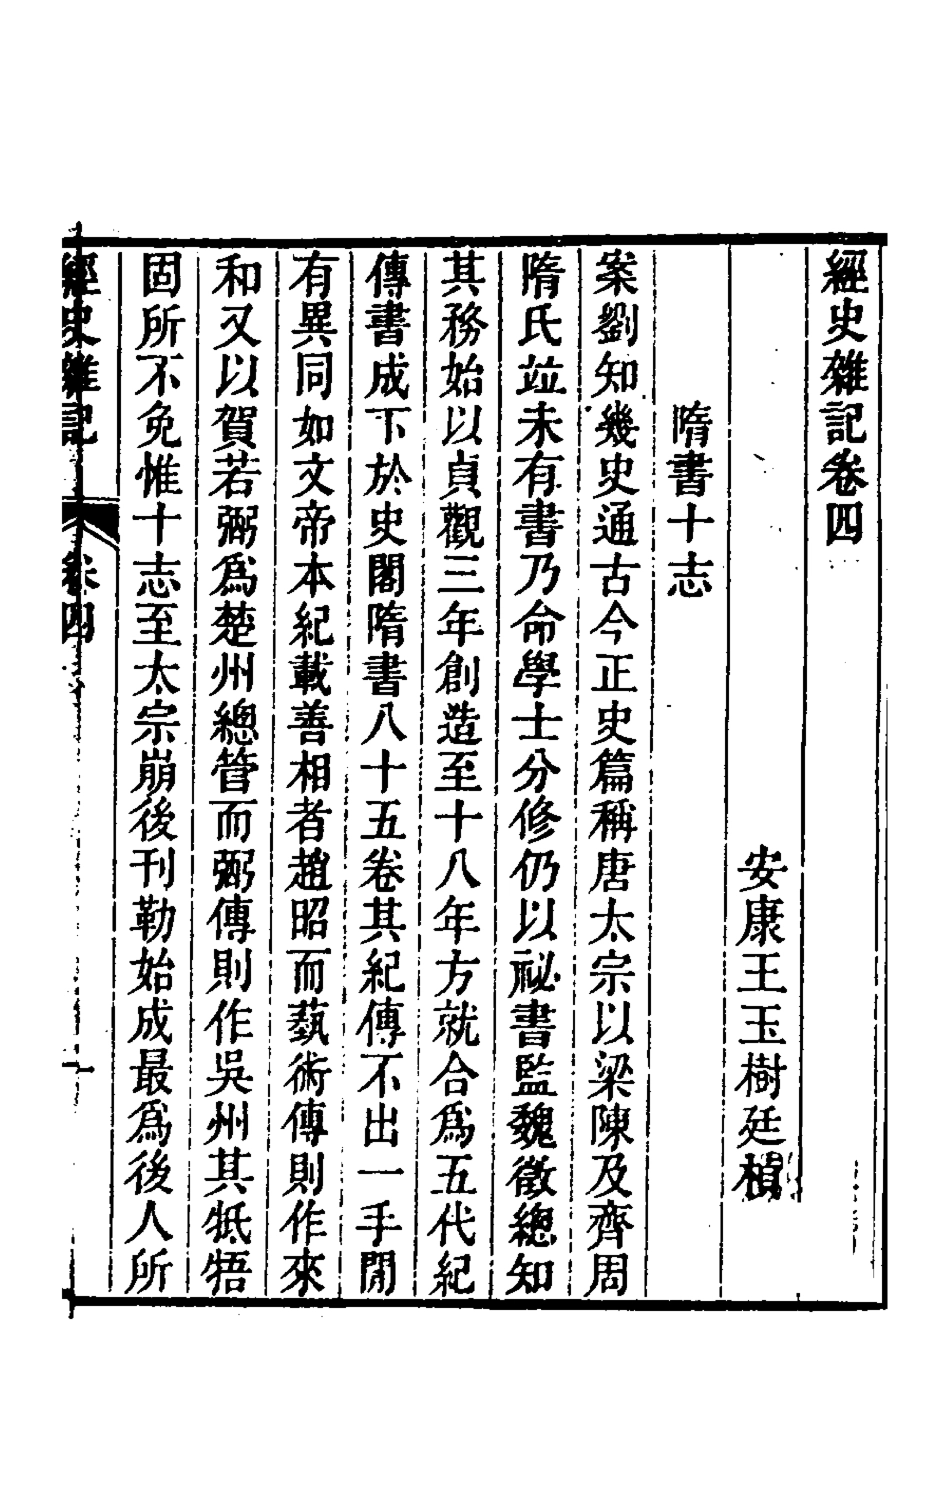 經史雜記卷四
安康王玉樹廷楨
隋書十志
案劉知幾史通古今正史篇稱唐太宗以梁陳及齊周
隋氏竝未有書乃命學士分修仍以祕書監魏徵總知
其務始以貞觀三年創造至十八年方就合爲五代紀
傳書成下於史閣隋書八十五卷其紀傳不出一手閒
有異同如文帝本紀載善相者趙昭而蓺術傳則作來
和又以賀若弼爲楚州總管而弼傳則作吳州其牴牾
固所不免惟十志至太宗崩後刊勒始成最爲後人所
經史雜記
卷四
一